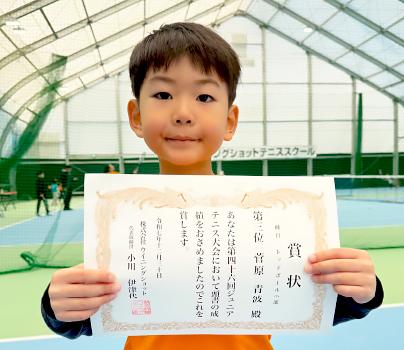 賞状
種目 レッドボールの部
第三位 菅原 青波 殿
あなたは第四十六回ジュニア
テニス大会において頭書の成
績をおさめましたのでこれを
賞します。
令和七年十二月二十日
株式会社 ウイニングショット
代表取締役 小川 伊津代
グショットテニススクール